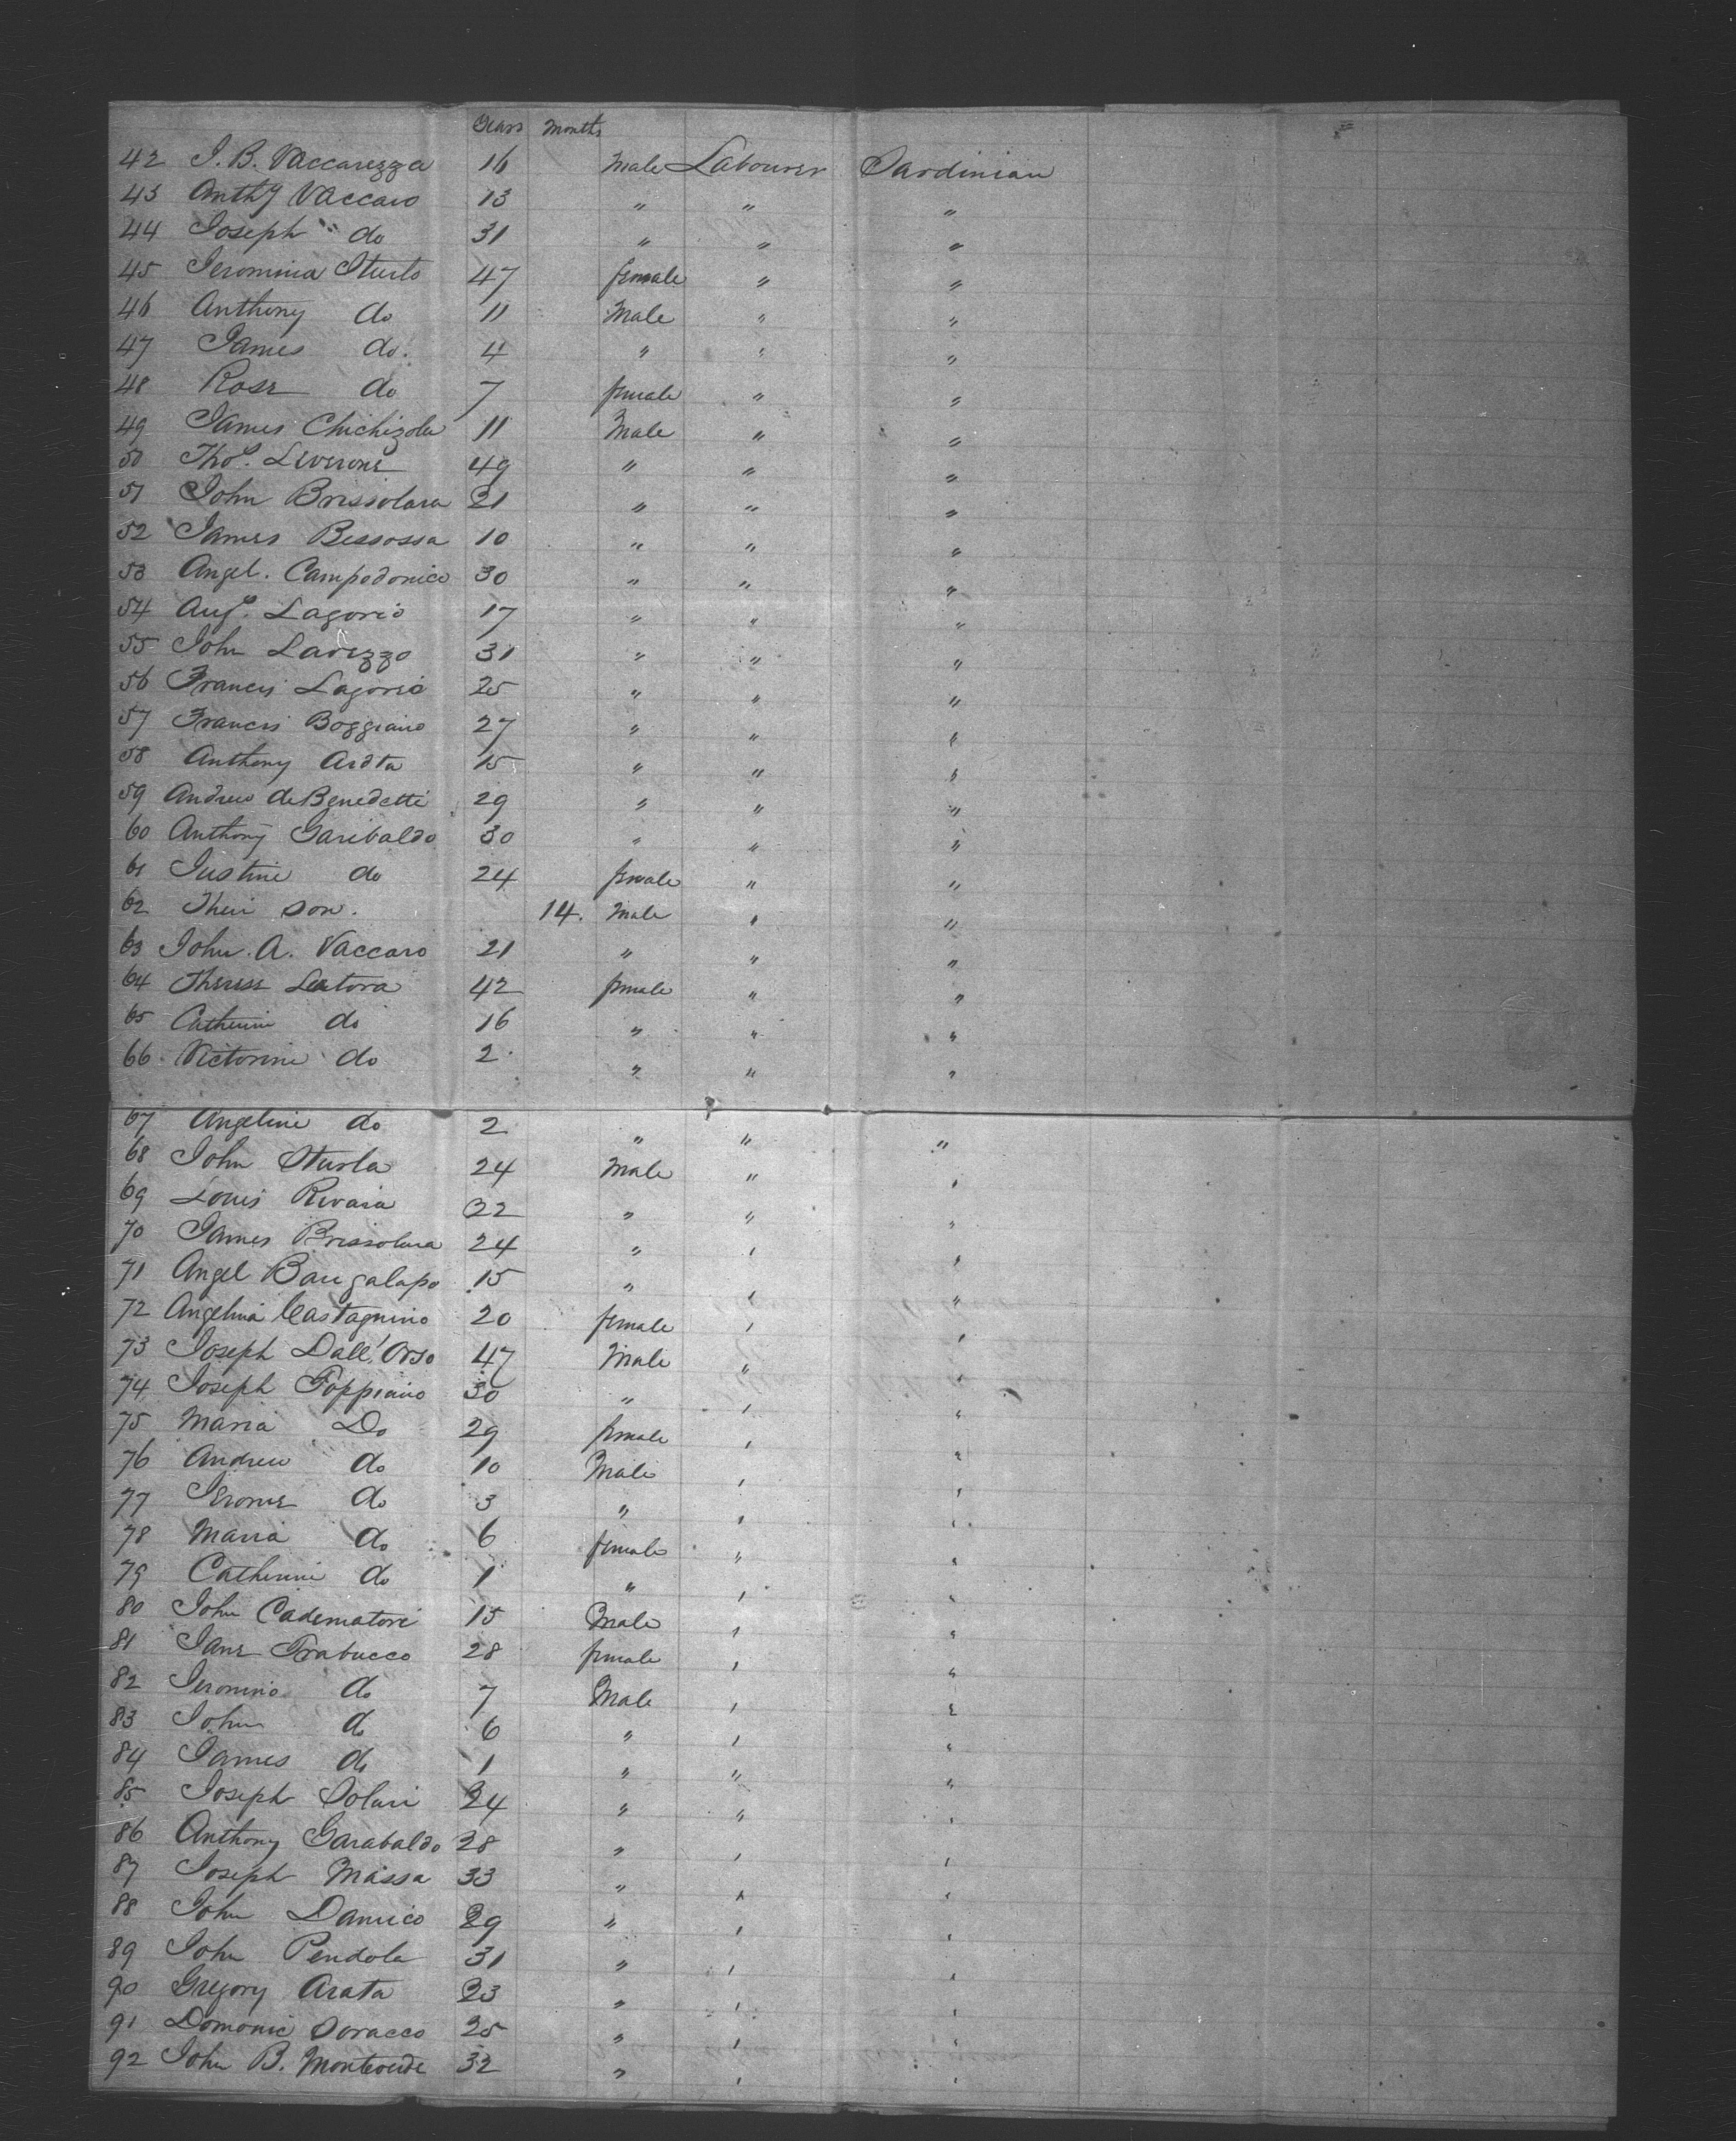 Years Months
42 J. B. Vaccarezza 16 Male Labourer Sardinian
43 Anthy Vaccaro 13 " " "
44 Joseph do 31 " " "
45 Jeromina Sturlo 47 female " "
46 Anthony do 11 Male " "
47 James do. 4 " " "
48 Rose do 7 female " "
49 James Chichizola 11 Male " "
50 Thos. Leverone 49 " " "
51 John Brissolara 21 " " "
52 James Bessossa 10 " " "
53 Angel. Campodonico 30 " " "
54 Augo. Lagorio 17 " " "
55 John Lavezzo 31 " " "
56 Francis Lagorio 25 " " "
57 Francis Boggiano 27 " " "
58 Anthony Arata 15 " " "
59 Andrew de Benedetti 29 " " "
60 Anthony Garibaldo 30 " " "
61 Justine do 24 female " "
62 Their son. 14. Male " "
63 John. A. Vaccaro 21 " " "
64 Therese Latora 42 female " "
65 Catherine do 16 " " "
66 Victorine do 2 " " "
67 Angeline do 2 " " "
68 John Sturla 24 Male " "
69 Louis Rivara 22 " " "
70 James Brissolara 24 " " "
71 Angel Barigalupo 15 " " "
72 Angelina Castagnino 20 female " "
73 Joseph Dall'Orso 47 Male " "
74 Joseph Foppiano 30 " " "
75 Maria Do 29 female " "
76 Andrew do 10 Male " "
77 Jerome do 3 " " "
78 Maria do 6 female " "
79 Catherine do 1 " " "
80 John Cadematore 15 Male " "
81 Jane Trabucco 28 female " "
82 Jeronimo do 7 Male " "
83 John do 6 " " "
84 James do 1 " " "
85 Joseph Solari 24 " " "
86 Anthony Garabaldo 28 " " "
87 Joseph Massa 33 " " "
88 John Damico 29 " " "
89 John Pendola 31 " " "
90 Gregory Arata 23 " " "
91 Domonic Soracco 25 " " "
92 John B. Monteverde 32 " " "